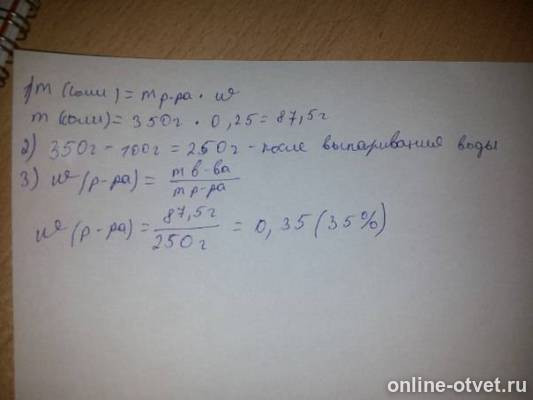 1) m (соли) = m р-ра · w
m (соли) = 350г · 0,25 = 87,5г
2) 350г - 100г = 250г - после выпаривания воды
3) w (р-ра) = m в-ва / m р-ра
w (р-ра) = 87,5г / 250г = 0,35 (35%)
online-otvet.ru